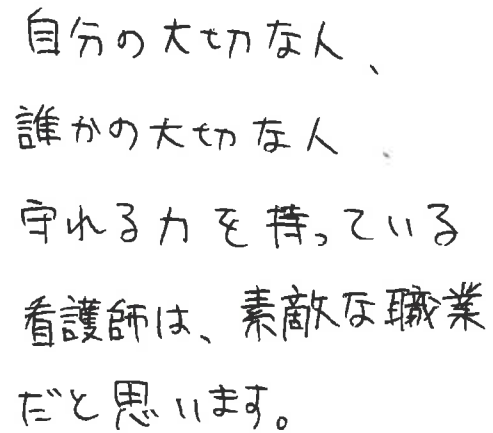 自分の大切な人、
誰かの大切な人
守れる力を持っている
看護師は、素敵な職業
だと思います。